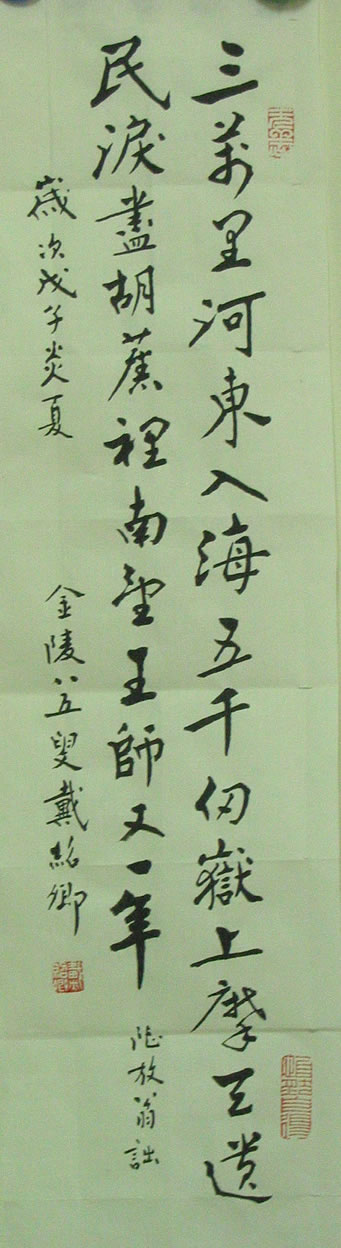 三萬里河東入海五千仞嶽上摩天遺
民淚盡胡塵裡南望王師又一年
陸放翁詩
歲次戊子炎夏
金陵八五叟戴紹卿